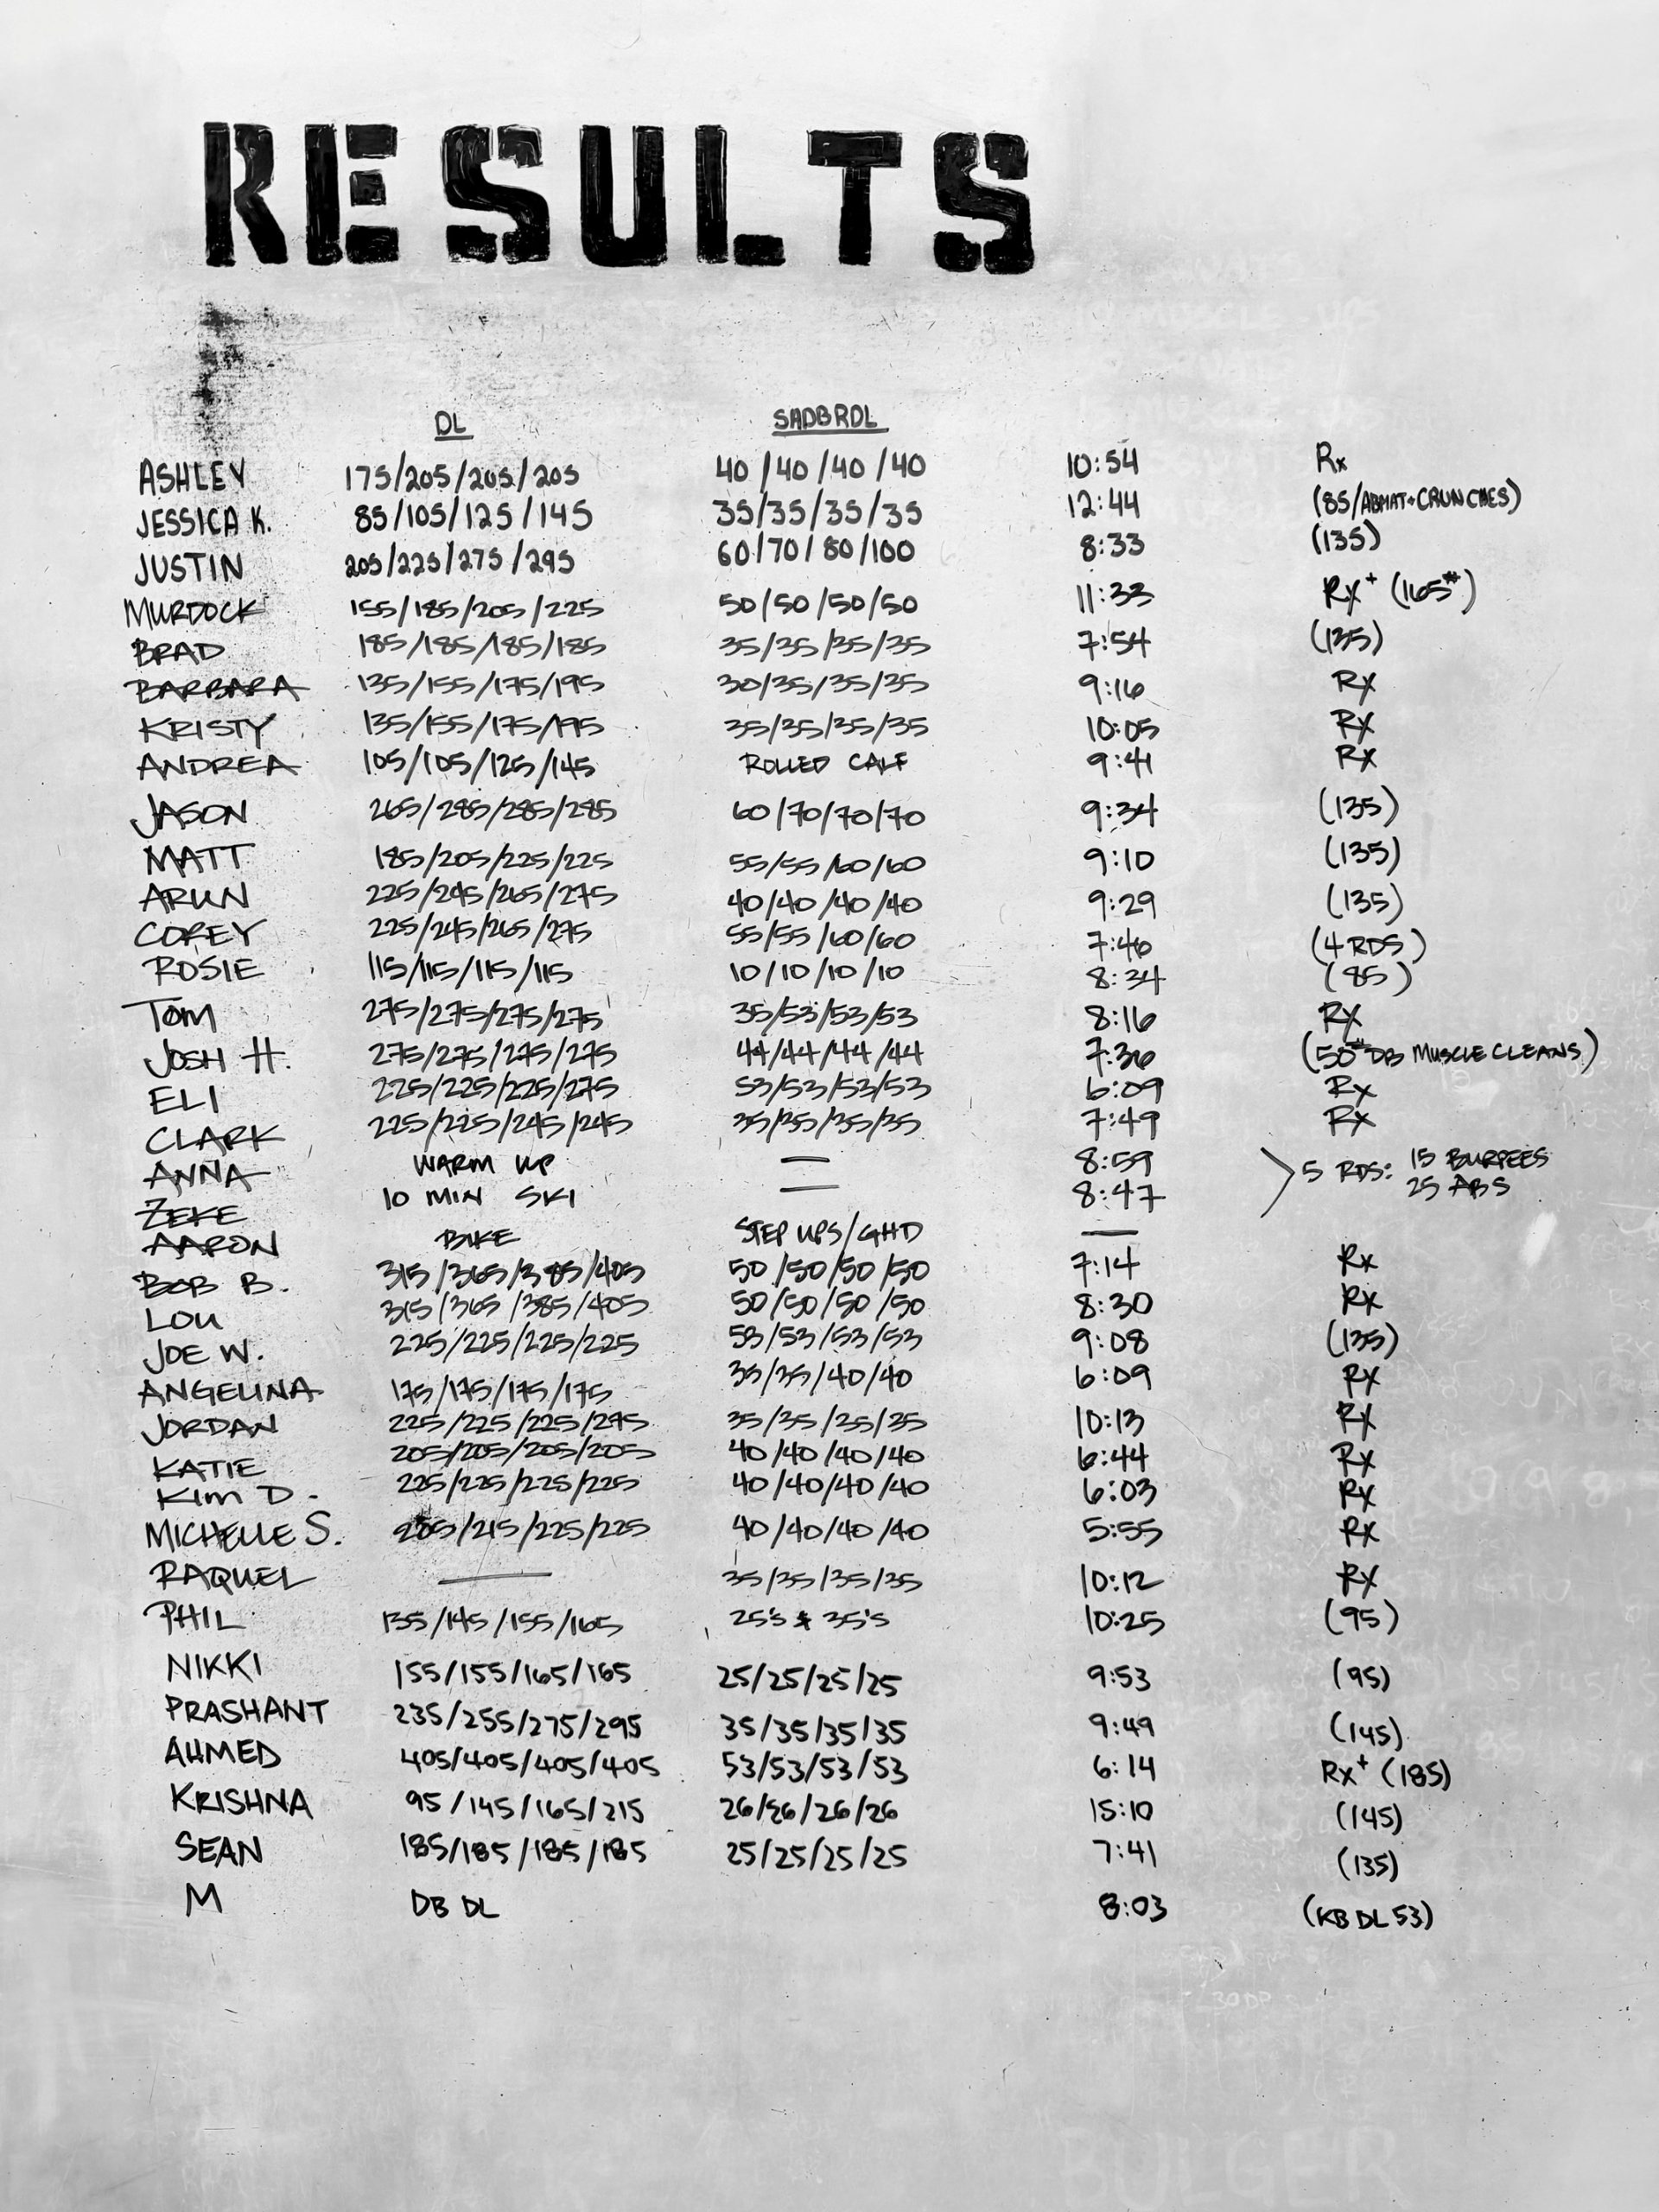 RESULTS
DL SADBRDL
ASHLEY 175/205/205/205 40/40/40/40 10:54 Rx
JESSICA K. 85/105/125/145 35/35/35/35 12:44 (85/ABMAT-CRUNCHES)
JUSTIN 205/225/275/295 60/70/80/100 8:33 (135)
MURDOCK 155/185/205/225 50/50/50/50 11:33 RX+ (165#)
BRAD 185/185/185/185 35/35/35/35 7:54 (135)
BARBARA 135/155/175/195 30/35/35/35 9:16 RX
KRISTY 135/155/175/195 35/35/35/35 10:05 RX
ANDREA 105/105/125/145 ROLLED CALF 9:41 RX
JASON 265/285/285/285 60/70/70/70 9:34 (135)
MATT 185/205/225/225 55/55/60/60 9:10 (135)
ARUN 225/245/265/275 40/40/40/40 9:29 (135)
COREY 225/245/265/275 55/55/60/60 7:46 (4 RDS)
ROSIE 115/115/115/115 10/10/10/10 8:34 (85)
TOM 275/275/275/275 35/53/53/53 8:16 RX
JOSH H. 275/275/275/275 44/44/44/44 7:36 (50# DB MUSCLE CLEANS)
ELI 225/225/225/275 53/53/53/53 6:09 RX
CLARK 225/225/245/245 35/35/35/35 7:49 RX
ANNA WARM UP — 8:59 > 5 RDS: 15 BURPEES
ZEKE 10 MIN SKI — 8:47 25 ABS
AARON BIKE STEP UPS/GHD —
BOB B. 315/365/385/405 50/50/50/50 7:14 RX
LOU 315/365/385/405 50/50/50/50 8:30 RX
JOE W. 225/225/225/225 53/53/53/53 9:08 (135)
ANGELINA 175/175/175/175 35/35/40/40 6:09 RX
JORDAN 225/225/225/275 35/35/35/35 10:13 RX
KATIE 205/205/205/205 40/40/40/40 6:44 RX
KIM D. 225/225/225/225 40/40/40/40 6:03 RX
MICHELLE S. 205/215/225/225 40/40/40/40 5:55 RX
RAQUEL — 35/35/35/35 10:12 RX
PHIL 135/145/155/165 25'S & 35'S 10:25 (95)
NIKKI 155/155/165/165 25/25/25/25 9:53 (95)
PRASHANT 235/255/275/295 35/35/35/35 9:49 (145)
AHMED 405/405/405/405 53/53/53/53 6:14 RX+ (185)
KRISHNA 95/145/165/215 26/26/26/26 15:10 (145)
SEAN 185/185/185/185 25/25/25/25 7:41 (135)
M DB DL 8:03 (KB DL 53)
BULGER